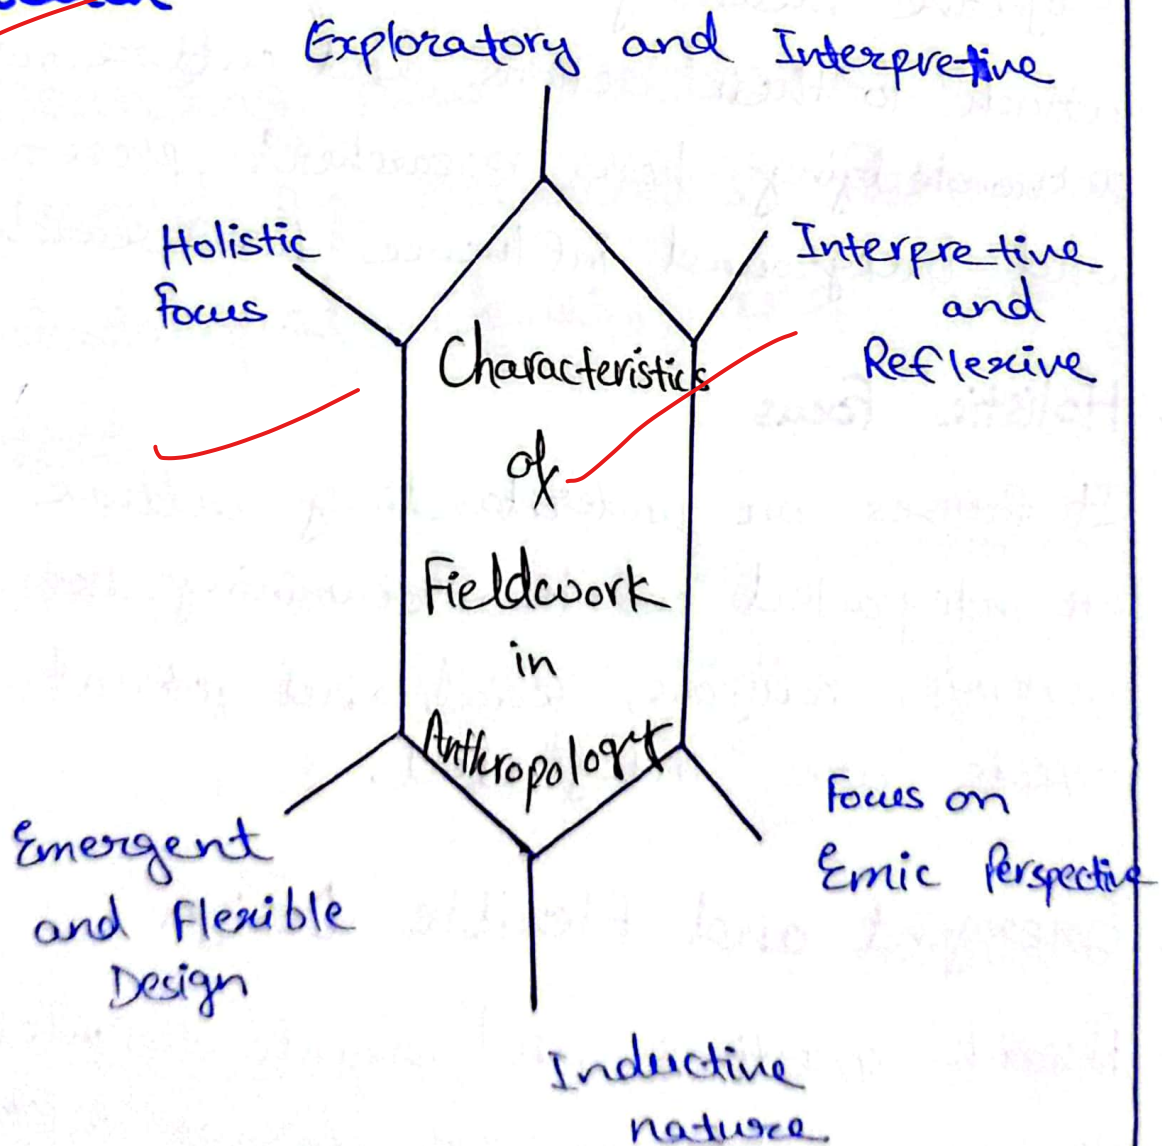 Exploratory and Interpretive
Holistic
focus
Interpretive
and
Reflexive
Characteristics
of
Fieldwork
in
Anthropology
Emergent
and Flexible
Design
Focus on
Emic Perspective
Inductive
nature